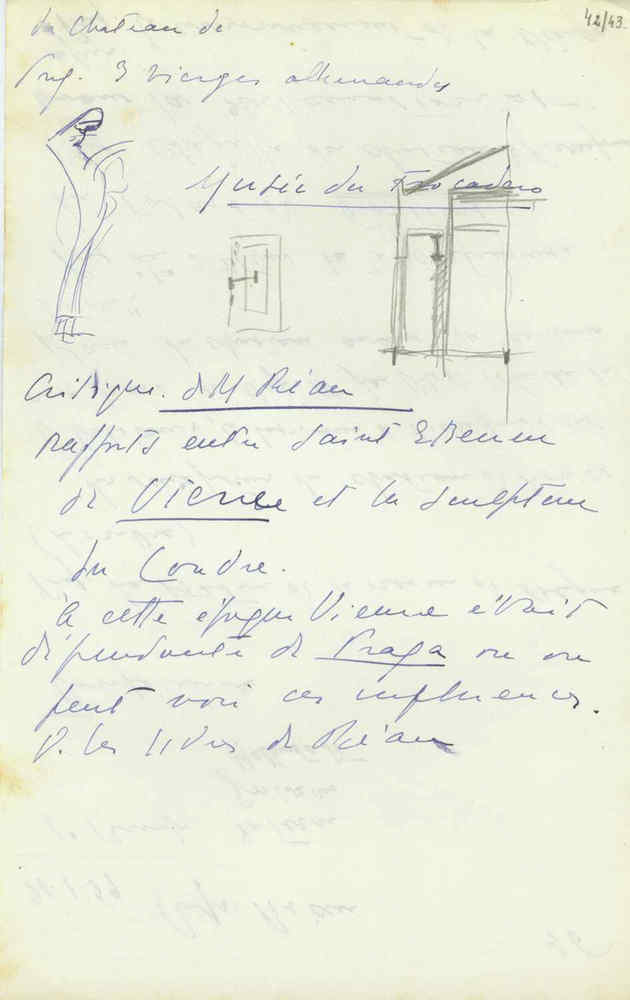 42/43
du chateau de
3 vierges allemandes
Musée du Trocadero
Critique. d M Réau
rapports entre Saint Etienne
de Vienne et la sculpture
du Londre.
à cette époque Vienne était
dépendante de Praga ou on
peut voir ces influences.
V. les livres de Réau